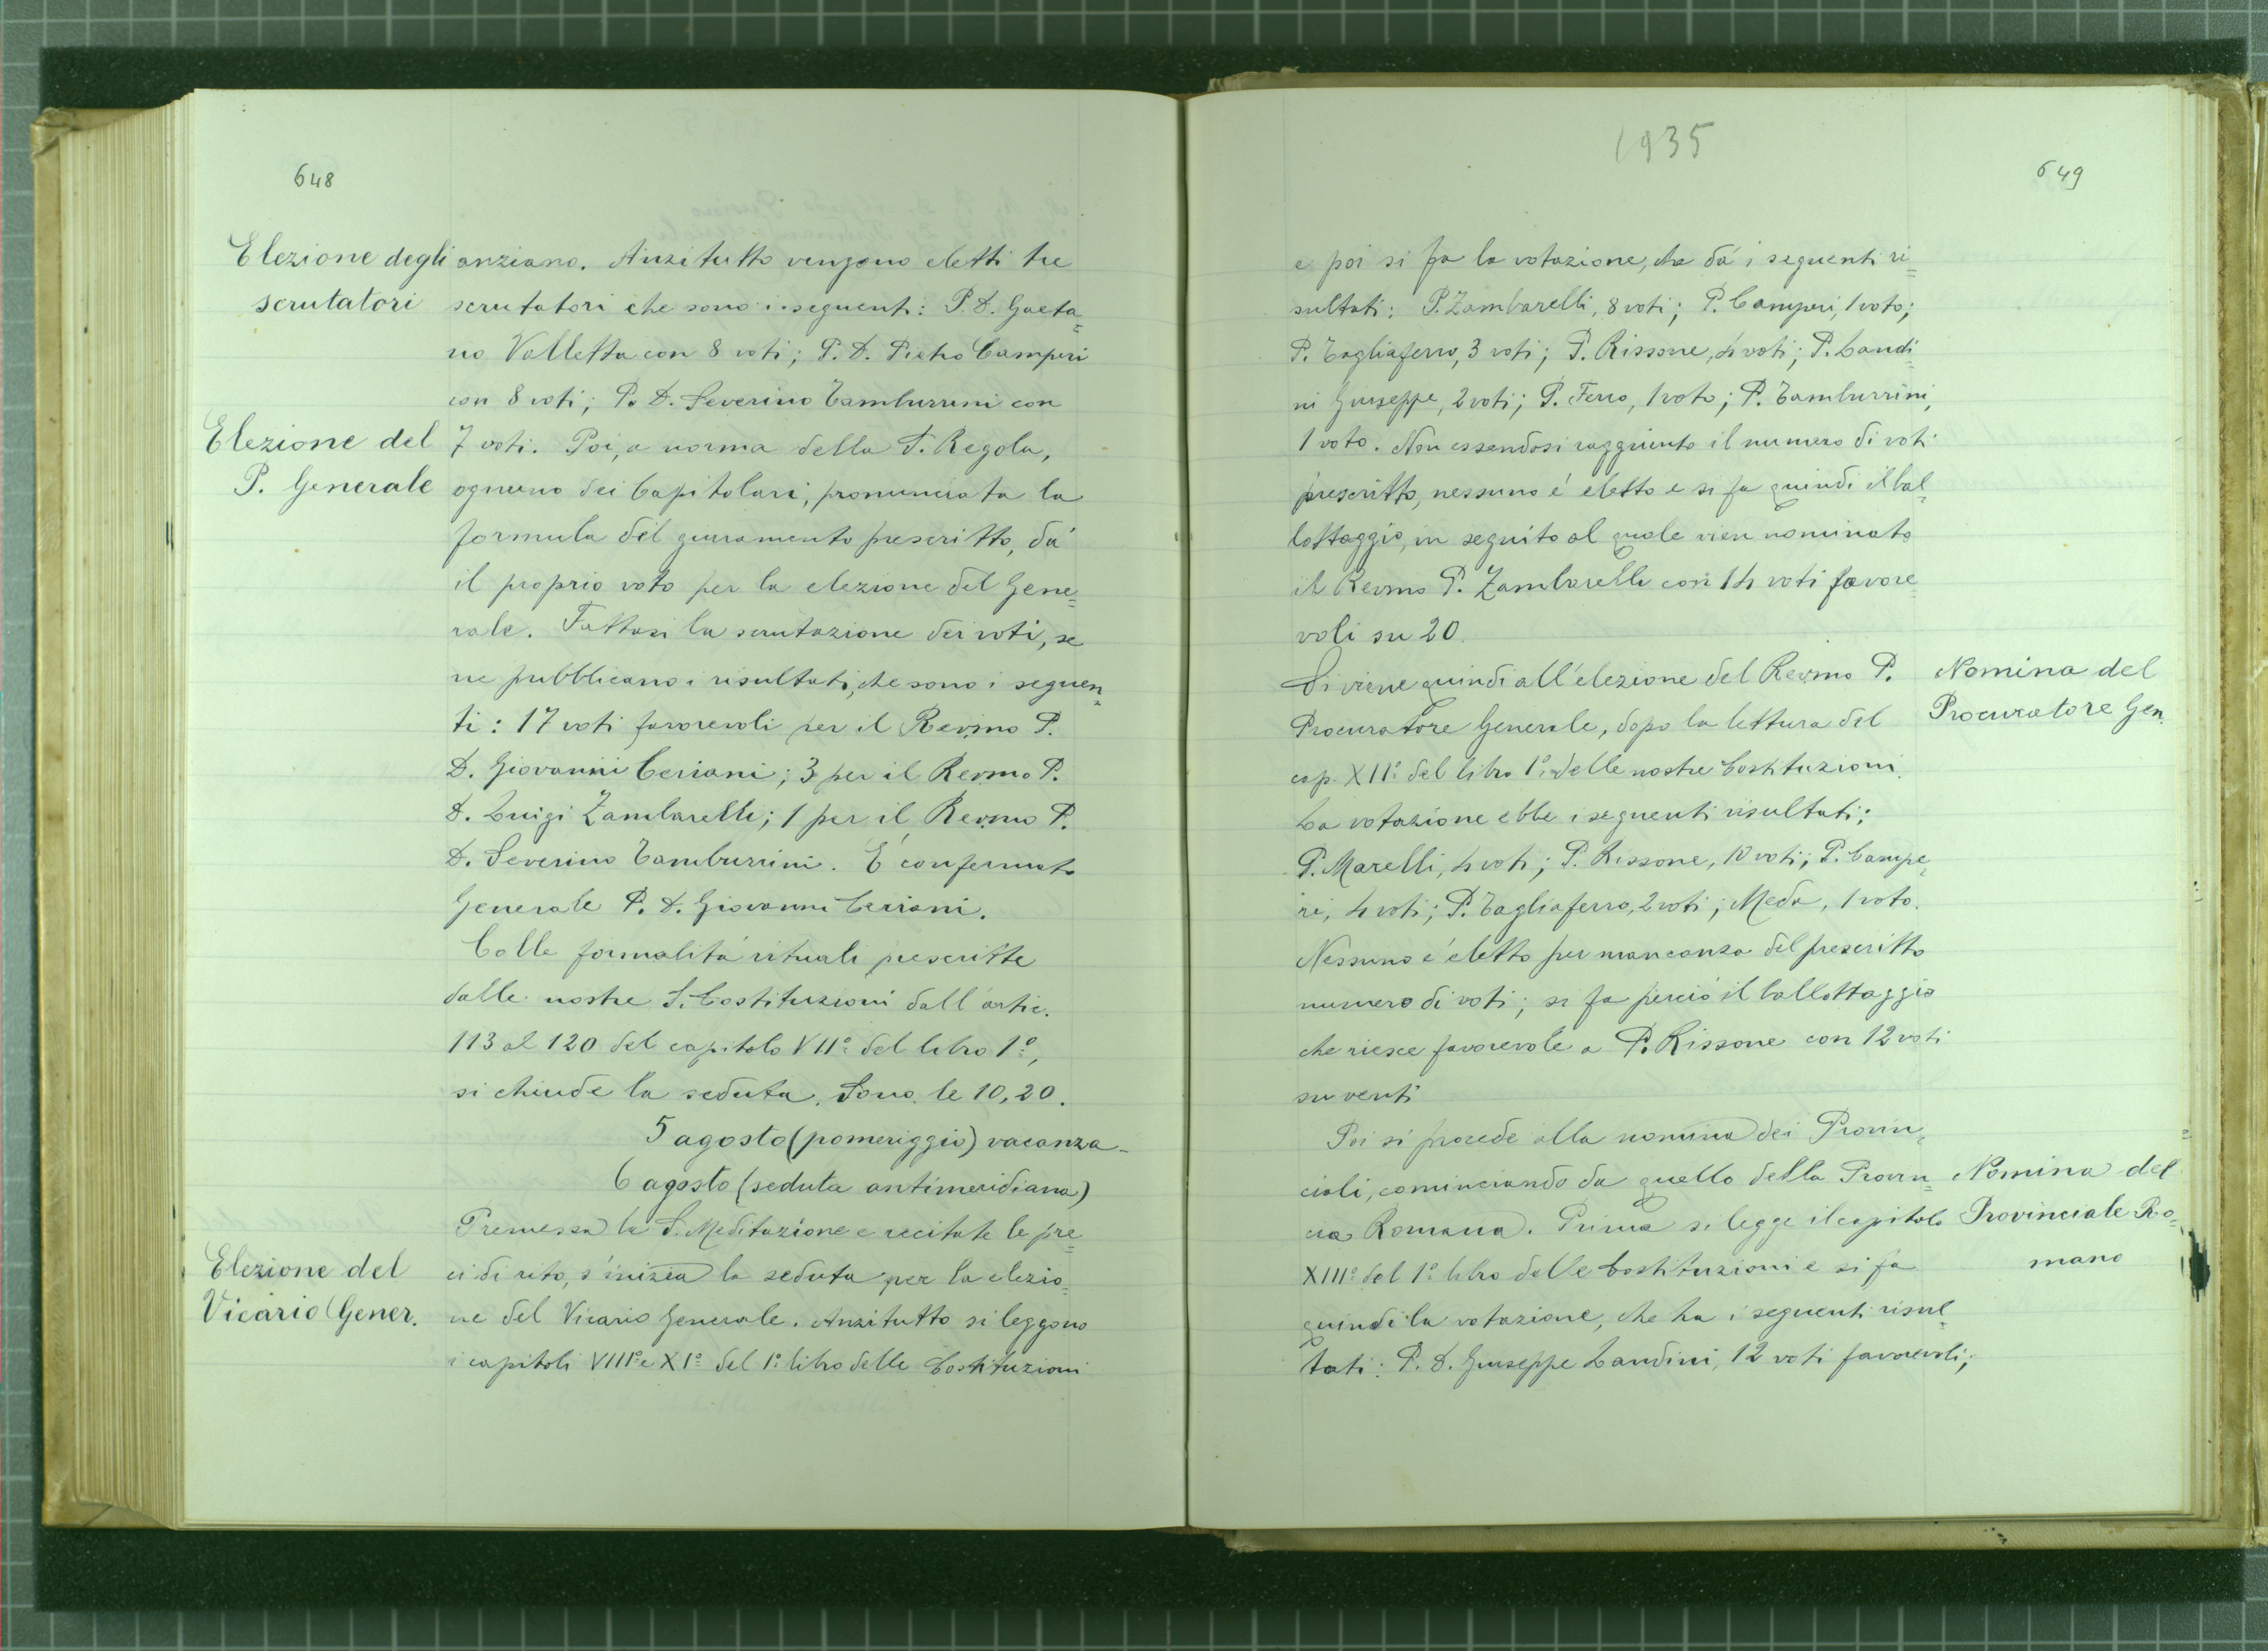 648
Elezione degli
scrutatori
anziano. Anzitutto vengono eletti tre
scrutatori che sono i seguenti: P. D. Gaeta=
no Valletta con 8 voti; P. D. Pietro Camperi
con 8 voti; P. D. Severino Tamburrini con
Elezione del
P. Generale
7 voti. Poi, a norma della S. Regola,
ognuno dei Capitolari, pronunciata la
formula del giuramento prescritto, dá
il proprio voto per la elezione del Gene=
rale. Fattasi la scrutazione dei voti, se
ne pubblicano i risultati, che sono i seguen=
ti: 17 voti favorevoli per il Revmo P.
D. Giovanni Ceriani; 3 per il Revmo P.
D. Luigi Zambarelli; 1 per il Revmo P.
D. Severino Tamburrini. É confermato
Generale P. D. Giovanni Ceriani.
Colle formalitá rituali prescritte
dalle nostre S. Costituzioni dall'artic.
113 al 120 del capitolo VIIº del libro 1º,
si chiude la seduta. Sono le 10,20.
5 agosto (pomeriggio) vacanza-
6 agosto (seduta antimeridiana)
Premessa la S. Meditazione e recitate le pre=
Elezione del
Vicario Gener.
ci di rito, s'inizia la seduta per la elezio=
ne del Vicario Generale. Anzitutto si leggono
i capitoli VIIIº e XIº del 1º libro delle Costituzioni
1935
649
e poi si fa la votazione, che dá i seguenti ri=
sultati: P. Zambarelli, 8 voti; P. Camperi, 1 voto;
P. Tagliaferro, 3 voti; P. Rissone, 4 voti; P. Landi=
ni Giuseppe, 2 voti; P. Ferro, 1 voto; P. Tamburrini,
1 voto. Non essendosi raggiunto il numero di voti
prescritto, nessuno é eletto e si fa quindi il bal=
lottaggio, in seguito al quale vien nominato
il Revmo P. Zambarelli con 14 voti favore=
voli su 20.
Si viene quindi all'elezione del Revmo P.
Nomina del
Procuratore Gen.
Procuratore Generale, dopo la lettura del
cap. XIIº del libro 1º delle nostre Costituzioni.
La votazione ebbe i seguenti risultati:
P. Marelli, 4 voti; P. Rissone, 10 voti; P. Campe=
ri, 4 voti; P. Tagliaferro, 2 voti; Meda, 1 voto.
Nessuno é eletto per mancanza del prescritto
numero di voti; si fa perció il ballottaggio
che riesce favorevole a P. Rissone con 12 voti
su venti
Poi si procede alla nomina dei Provin=
ciali, cominciando da quello della Provin=
Nomina del
Provinciale Ro=
mano
cia Romana. Prima si legge il capitolo
XIIIº del 1º libro delle Costituzioni e si fa
quindi la votazione, che ha i seguenti risul=
tati: P. D. Giuseppe Landini, 12 voti favorevoli;